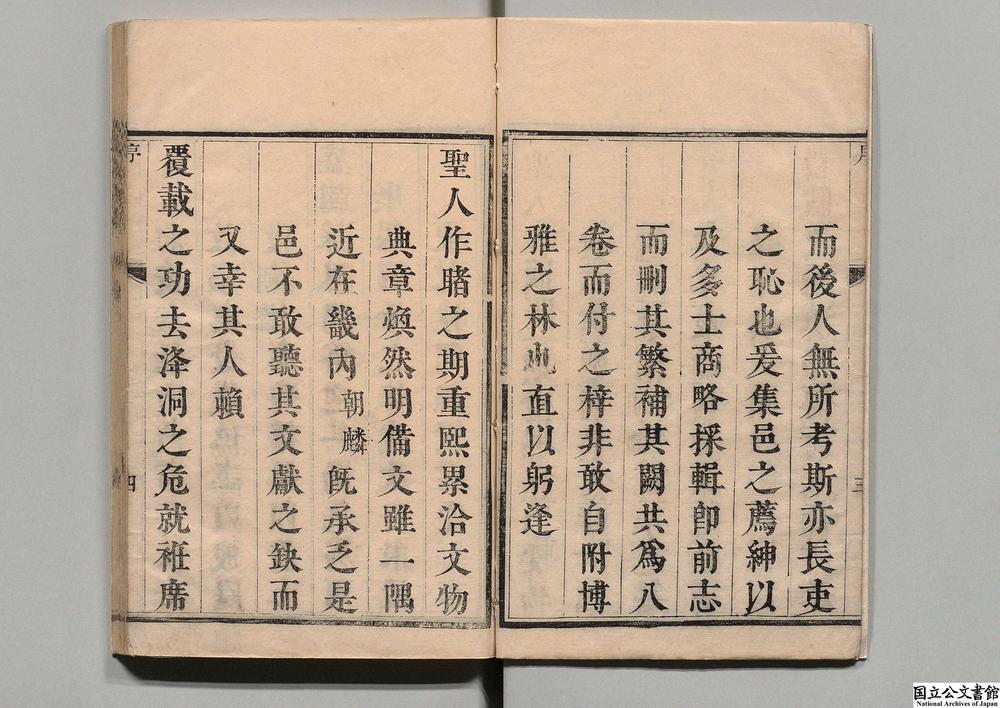 而後人無所考斯亦長吏
之恥也爰集邑之薦紳以
及多士商略採輯卽前志
而刪其繁補其闕共爲八
卷而付之梓非敢自附博
雅之林也直以躬逢
聖人作睹之期重熙累洽文物
典章煥然明備文雖一隅
近在畿內朝麟旣承乏是
邑不敢聽其文獻之缺而
又幸其人賴
覆載之功去洚洞之危就袵席
序
三
序
四
国立公文書館
National Archives of Japan